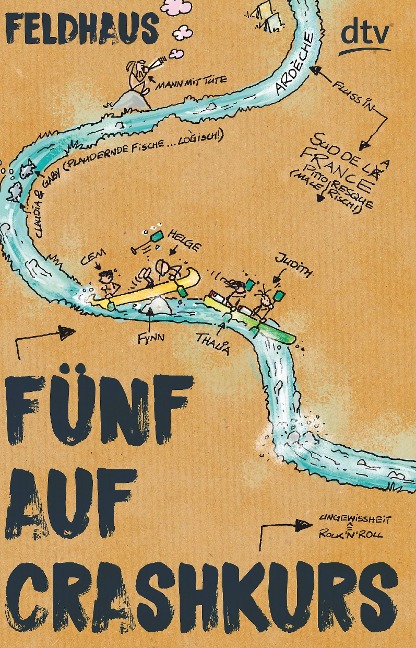 FELDHAUS
dtv
MANN MIT TÜTE
ARDÈCHE
FLUSS IN
SUD DE LA
FRANCE
PITTORESQUE
(MALERISCH!)
CLAUDIA & GABY (PLAUDERNDE FISCHE... LOGISCH!)
HELGE
CEM
JUDITH
FYNN
THALIA
FÜNF
AUF
CRASHKURS
UNGEWISSHEIT
&
ROCK'N'ROLL